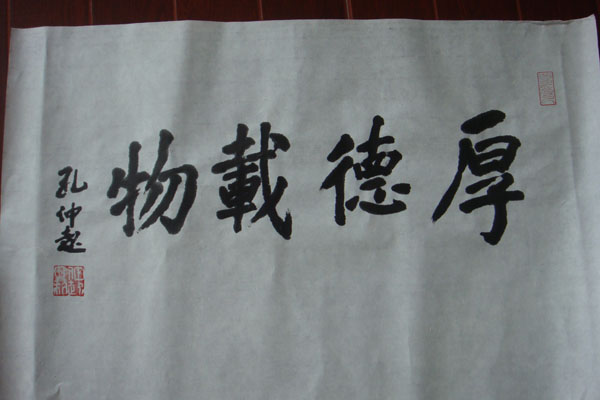 厚德載物
孔仲起